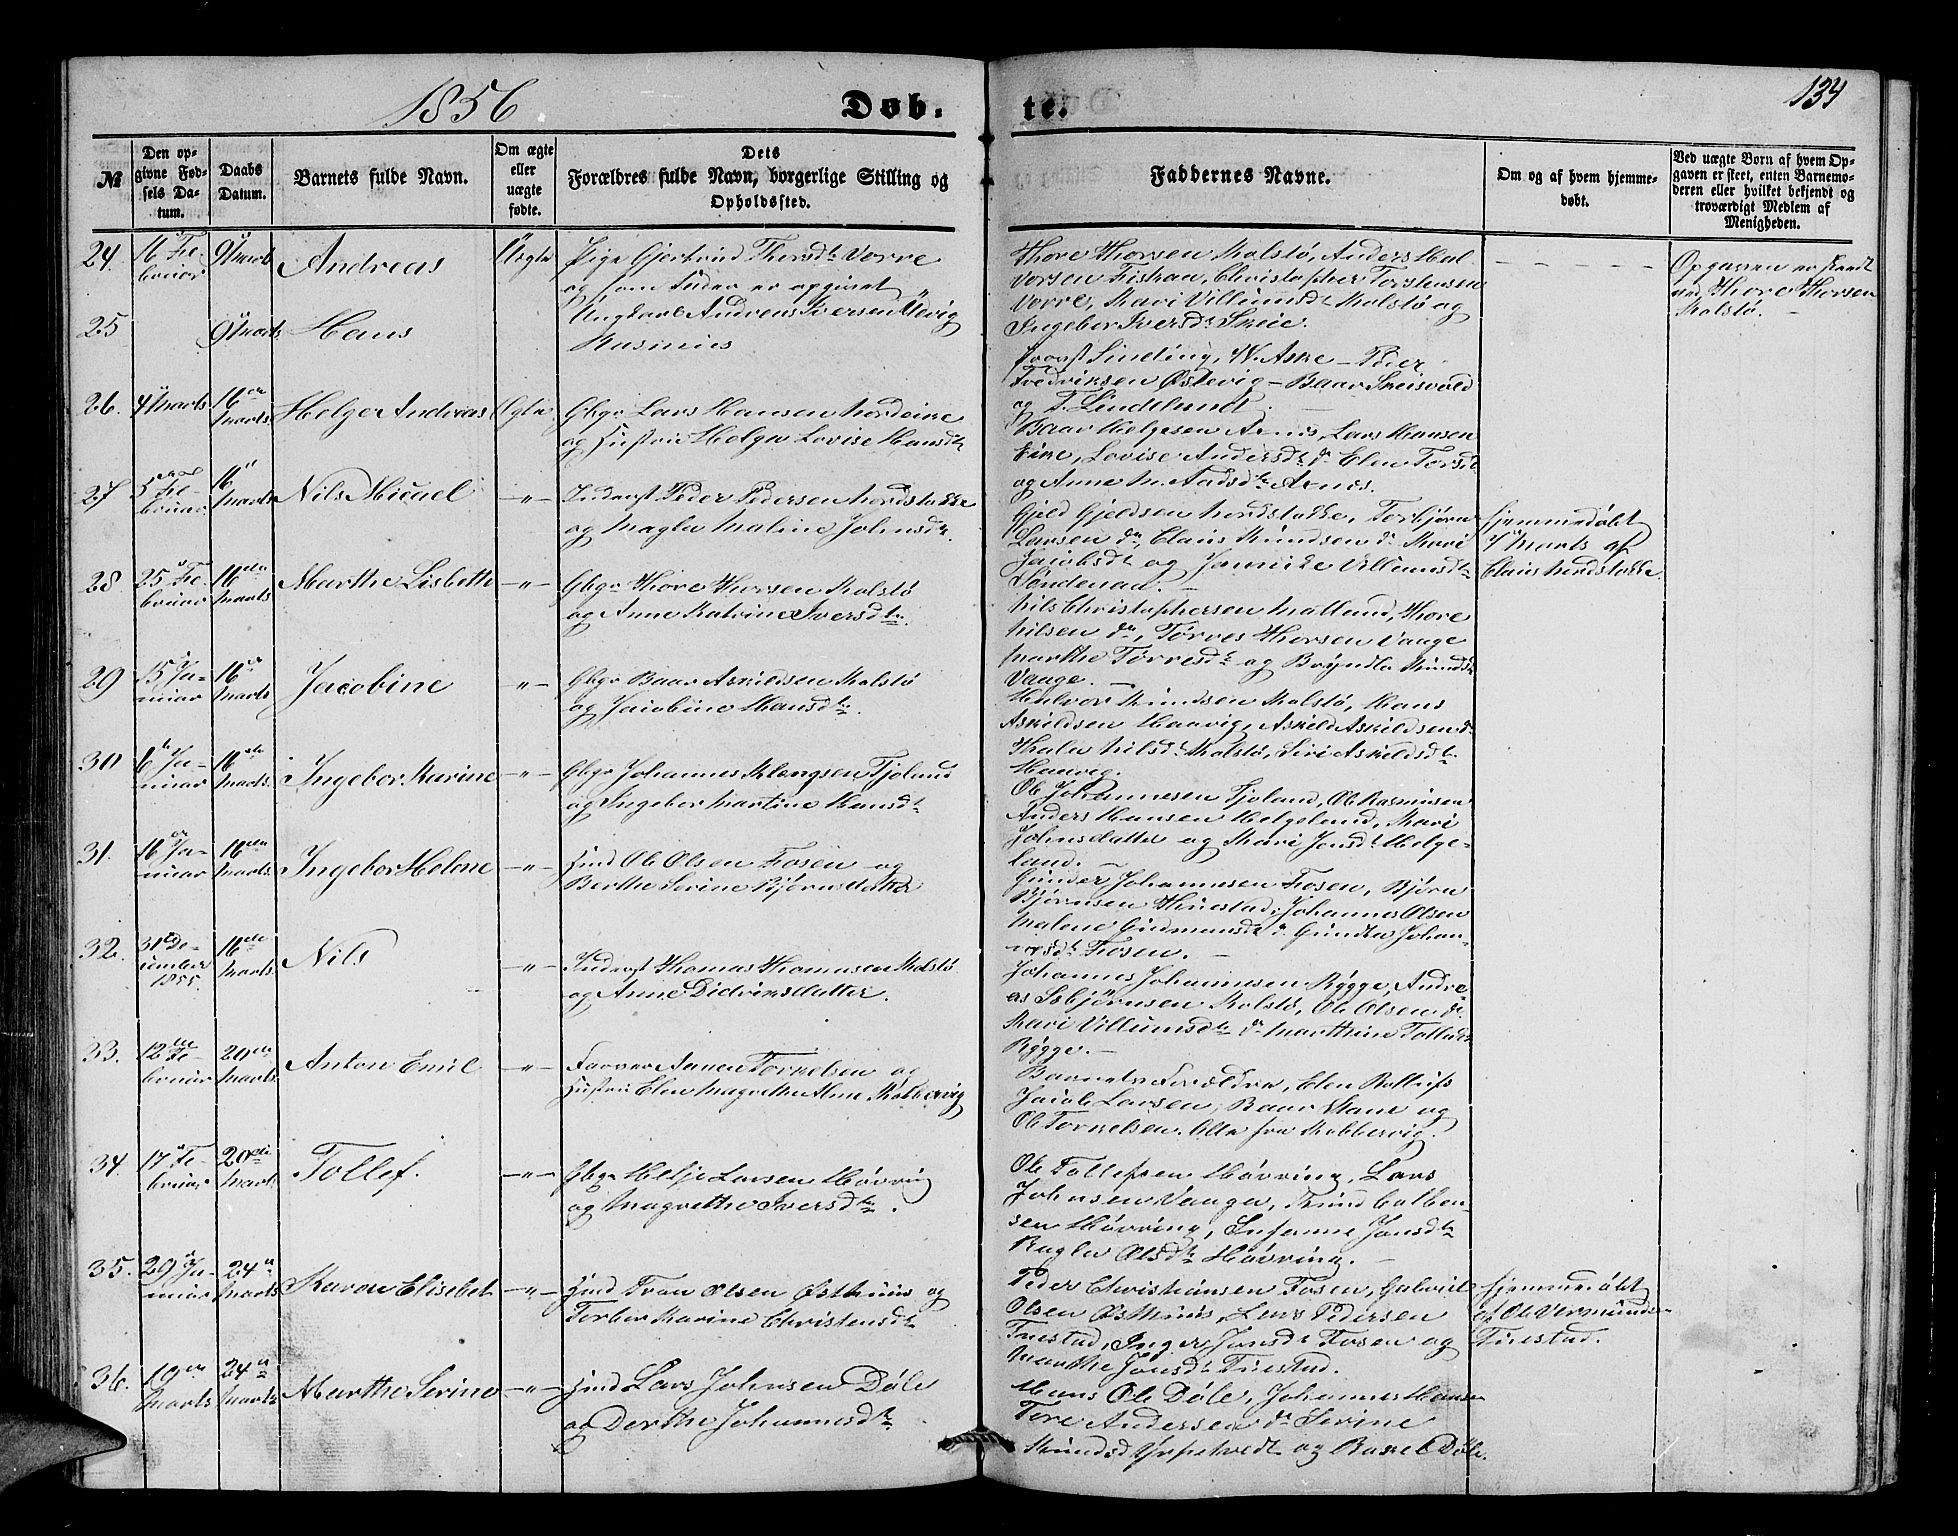 1856
Døb-
te.
134
№
Den op-
givne Fød-
sels Da-
tum.
Daabs
Datum.
Barnets fulde Navn.
Om ægte
eller
uægte
fødte.
Dets
Forældres fulde Navn, borgerlige Stilling og
Opholdssted.
Faddernes Navne.
Om og af hvem hjemme-
døbt.
Ved uægte Børn af hvem Op-
gaven er skeet, enten Barnemo-
deren eller hvilket bekjendt og
troværdigt Medlem af
Menigheden.
24.
16 Fe-
bruar
9 Marts
Andreas
Uægte
Pige Gjertrud Thorsdtr Vorre
og som Fader er opgivet
Ungkarl Andreas Iversen Udvig
Thore Thorsen Kolstø, Anders Hal
vorsen Fiskaa, Christopher Torstensen
Vorre, Kari Villumsdtr Kolstø og
Ingebor Iversdtr Skeie.
Opgaven er skeedt
av Thore Thorsen
Kolstø.
25
9 Marts
Hans
Rasmus
Provst Sinding, W. Aske - Peder
Fredriksen Østevig - Baar Skeisvold
og T. Lindelundt.
26.
4 Marts
16de
Marts
Helge Andreas
Ægte
Gbgr Lars Hansen Nordeike
og Hustrue Helga Lovise Hansdtr
Baar Helgesen Aknes, Lars Hansen
Eike, Lovise Andersdtr do Elen Torsdtr
og Anne M. Aadsdtr Aknes.
27
5 Fe-
bruar
16
Marts
Nils Micael
-"-
Inderst Peder Pedersen Nordstokke
og Magla Maline Johnsdtr
Gjeld Gjeldsen Nordstokke, Torbjørn
Larsen do, Claus Knudsen do Kari
Jacobsdtr og Jannicke Villumsdtr
Søndenaa.
Hjemmedøbt
7 Marts af
Claus Nordstokke.
28
25 Fe-
bruar
16de
Marts
Marthe Lisbeth
-"-
Gbgr Thore Thorsen Kolstø
og Anne Katrine Iversdtr.
Nils Christophersen Mælland, Thore
Nilsen do, Tørres Thorsen Vaage
Marthe Tørresdtr og Bryndla Knudsdtr
Vaage.
29
15 Ja-
nuar
16de
Marts
Jacobine
-"-
Gbgr Baar Askildsen Kolstø
og Jacobine Hansdtr
Halvor Knudsen Kolstø, Hans
Askildsen Haavig, Askild Askildsen do
Thala Nilsdtr Kolstø, Siri Askildsdtr
Haavig.
30
6 Ja-
nuar
16de
Marts.
Ingebor Karine
-"-
Gbgr Johannes Klængsen Fjoland
og Ingebor Martine Hansdtr
Ole Johannesen Fjoland, Ole Rasmusen
Anders Hansen Helgeland, Kari
Johnsdatter og Kari Jonsdtr Helge-
land.
31.
16 Ja-
nuar
16de
Marts.
Ingebor Helene
-"-
Hmd Ole Olsen Fosen og
Berthe Serine Bjørnsdatter
Gunder Johannesen Fosen, Bjørn
Bjørnsen Thuestad, Johannes Olsen
Malene Gudmunsdtr do Gundla Johan-
nesdtr Fosen.
32.
31 De-
cember
1855.
16de
Marts.
Nils
-"-
Inderst Thomas Thomasen Kolstø
og Anne Didriksdatter.
Johannes Johannesen Rygge, Andre-
as Isbjørnsen Kolstø, Ole Olsen do
Kari Villumsdtr do Marthine Tollefsdtr
Rygge.
33.
12 Fe-
bruar
20de
Marts.
Anton Emil
-"-
Farver Aanen Torkelsen og
Hustrue Elen Magrethe Alme Kobbervig
Barnets Forældre, Elen Rolluf
Jacob Larsen, Baar Stane og
Ole Torkelsen. Alle fra Kobbervig.
34.
17 Fe-
bruar
20de
Marts
Tollef.
-"-
Gbgr Helje Larsen Høvring
og Magrethe Iversdtr.
Ole Tollefsen Høvring, Lars
Johnsen Vaage, Knud Colben-
sen Høvring, Susanne Jonsdtr
Ragla Olsdtr Høvring.
35.
29 Ja-
nuar
24
Marts
Karen Elisabet
-"-
Hmd Tron Olsen Østhuus og
Torbor Karine Christensdtr
Peder Christiansen Fosen, Gabriel
Olsen Østhuus, Lars Pedersen
Tuestad, Inger Jonsdtr Fosen og
Marthe Jonsdtr Tuestad.
Hjemmedøbt
af Ole Vermunds-
Tuestad.
36.
19
Marts
24
Marts
Marthe Serine
-"-
Hmd Lars Johnsen Døle
og Dorthe Johannesdtr
Hans Ole Døle, Johannes Hansen
Tore Andersen do Serine
Knudsd Yrpekvedt og Bakel Døle.